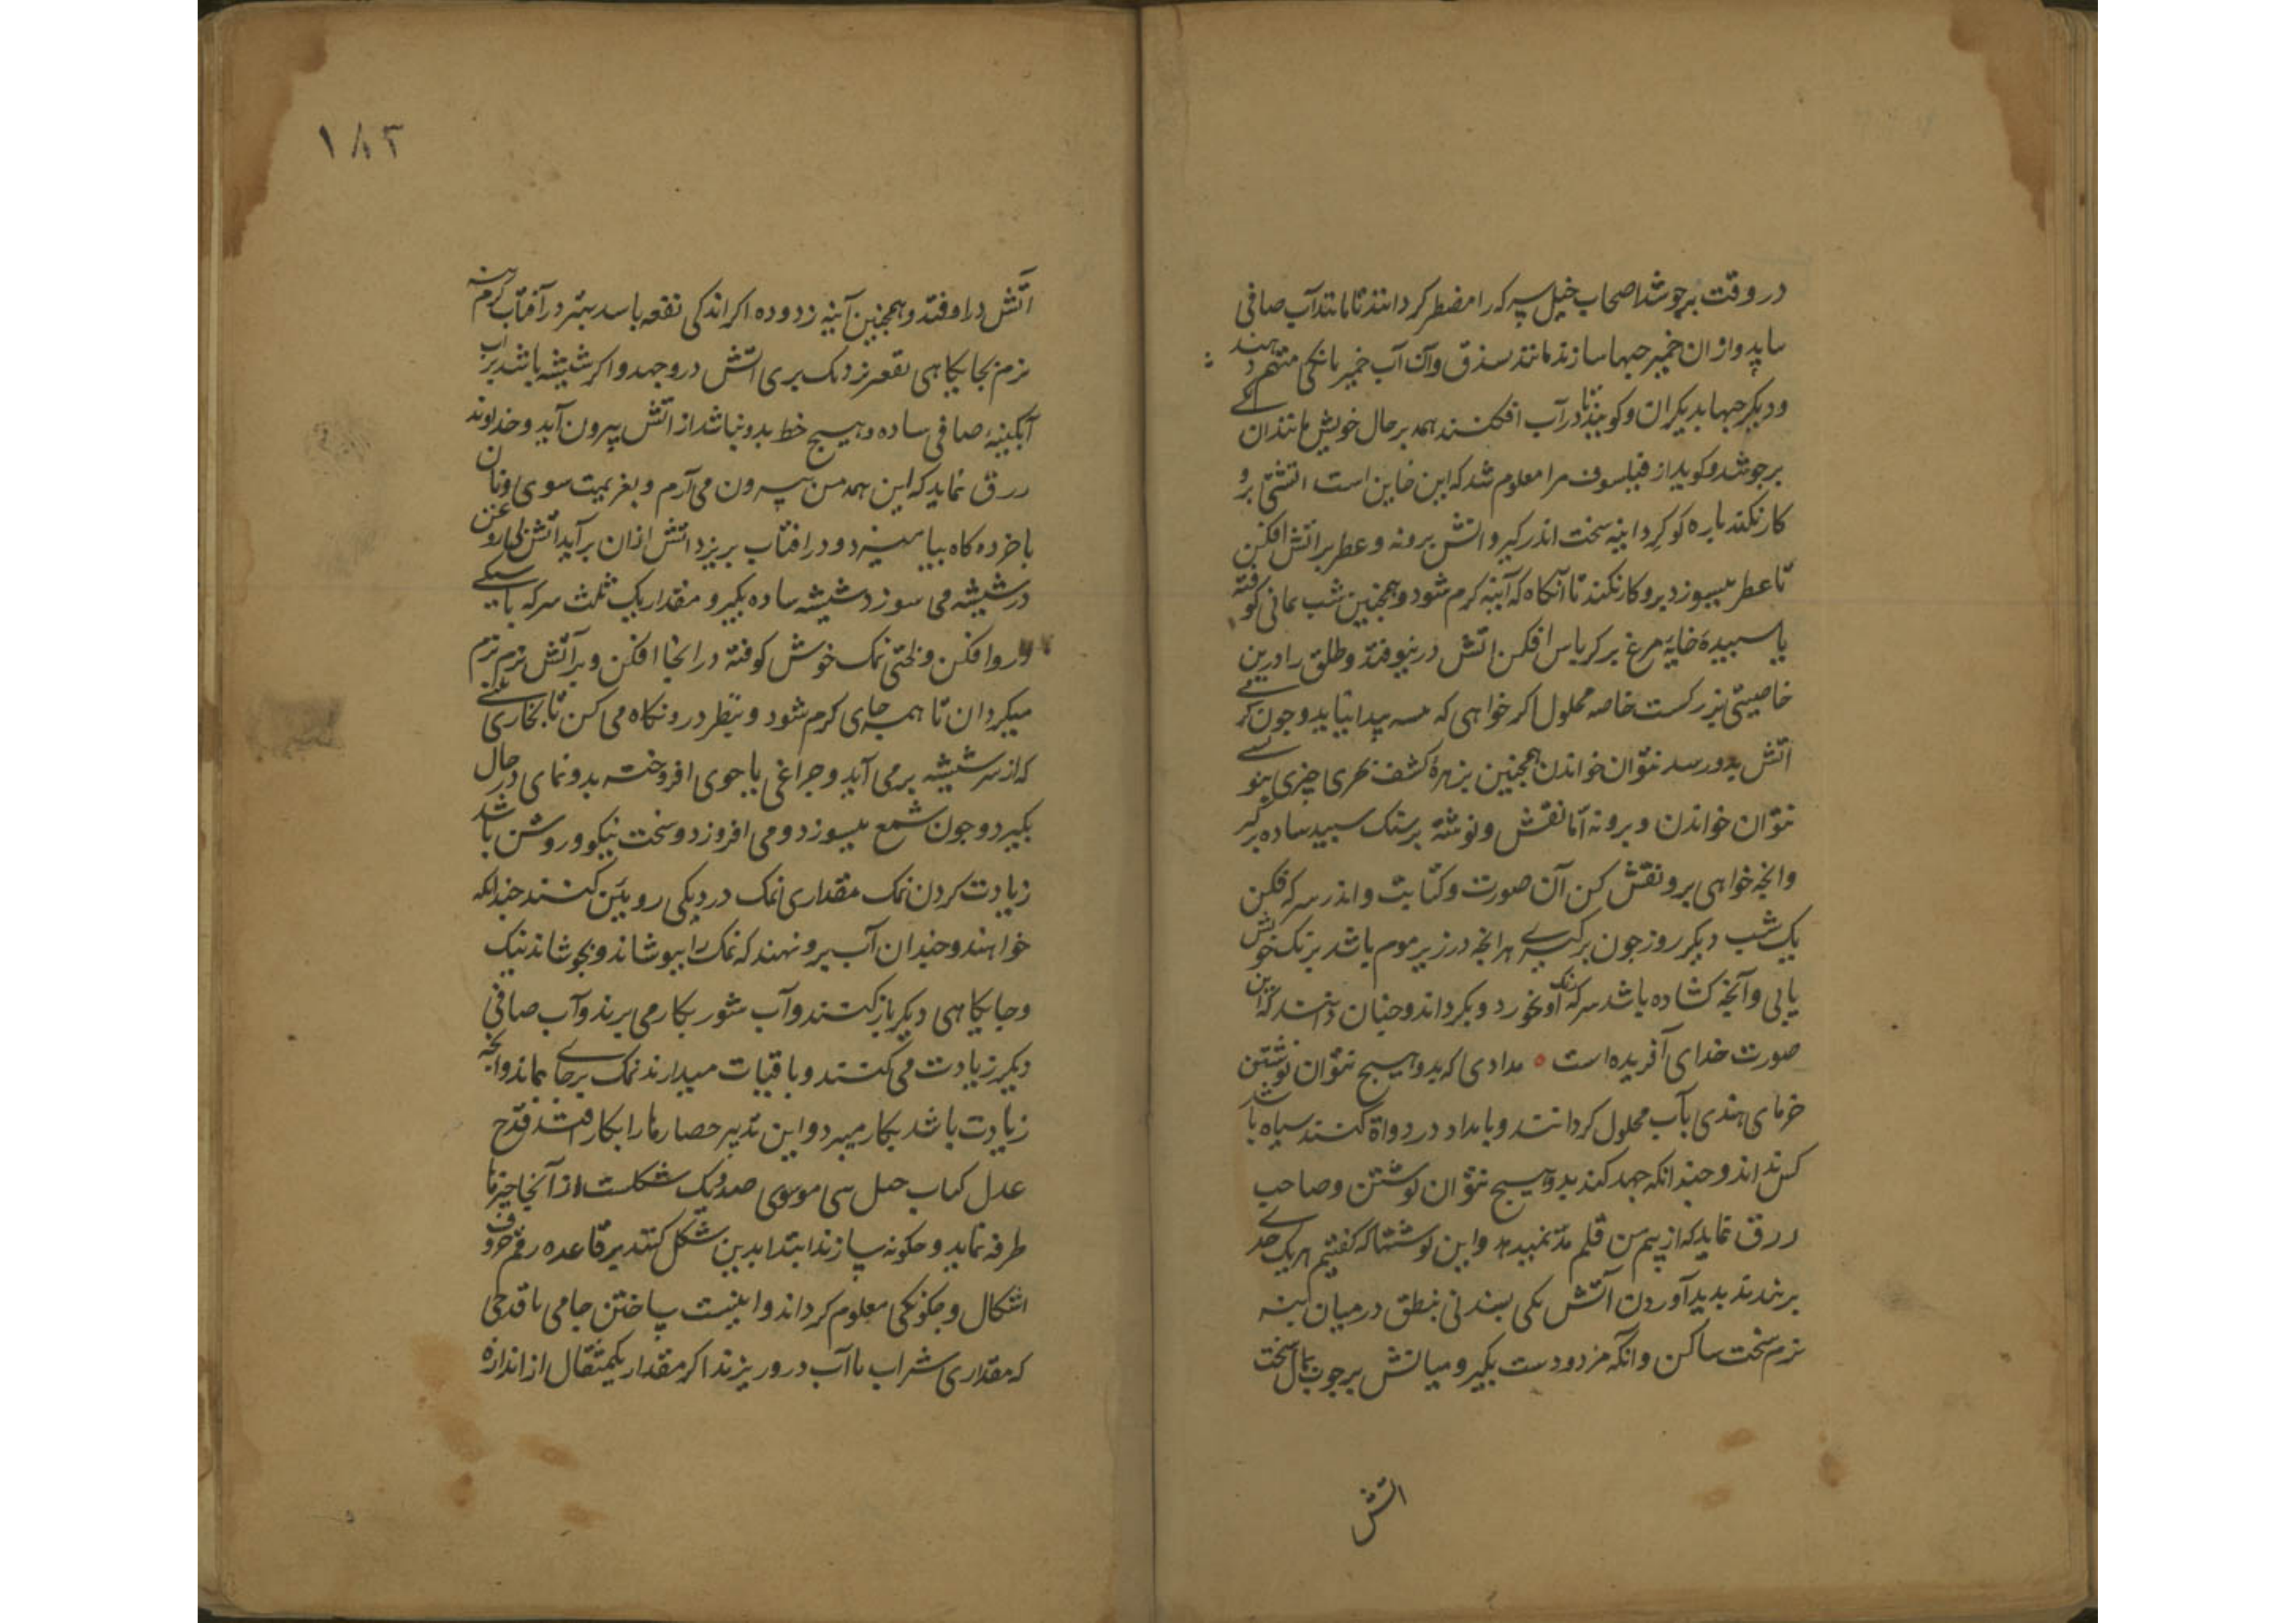 در وقت برجوشد اصحاب خیل سرکه را مضطر کردانند تا مانند آب صافی
ساید و ازان خمیر حبها سازند مانند سندق و آن آب خمیر بانکی متهم دهند
و دیکر حبها بدیکران و کویند تا در آب افکنند همه برحال خویش مانند ان
برجوشد و کوید از فیلسوف مرا معلوم شد که این خاین است اتشی برو
کار نکند پاره کو کرد اینه سخت اندر کیر و اتش برو نه و عطر بر اتش افکن
تا عطر میسوزد برو کار نکند تا آنکاه که آینه کرم شود و همجنین شب یمانی کوفته
با سبیده خایه مرغ بر کرباس افکن اتش درنیوفتد و طلق را درین
خاصیتی بزرکست خاصه محلول اکر خواهی که پیدا نیاید و جون
اتش بدو رسد نتوان خواندن همجنین بزهره کشف نحری جیزی
نتوان خواندن و برو نه اما نقش و نوشته بر سنک سبید ساده برکیر
وانجه خواهی برو نقش کن آن صورت و کتابت و اندر سرکه فکن
یک شب دیکر روز جون برکیری هرانجه در زیر موم باشد برنک خویش
یابی و آنجه کشاده باشد سرکه رنک او بخورد و بکرداند و جنان دانند که این
صورت خدای آفریده است ه مدادی که بدو هیسج نتوان نوشتن
خرمای هندی بآب محلول کردانند و بامداد در دواة کنند سیاه باشد
کس نداند و جندانکه جهد کند بدو هیسج نتوان نوشتن و صاحب
زرق نماید که از بیم من قلم مد نمیدهد و این نوشتها که کفتیم هریک جدی
برنهند بدید آوردن آتش یکی بندنی بنطق در میان بنه
نرم سخت ساکن و انکه مزدو دست بکیر و میانش برجوب بمال سخت
اتش
۱۸۲
اتش دراوفتد و همجنین آینه زدوده اکر اندکی نقعر باسد بنیر در آفتاب کرم بنه
نرم بجایکاهی نقعر نزدیک بری اتش دروجهد و اکر شیشه باشد برآب
آبکینه صافی ساده و هیسج خط بدو نباشد از اتش بیرون آید و خداوند
زرق نماید که این همه من بیرون می آرم و بعزیمت سوی
با خرده کاه بیامیزد و در افتاب بریزد اتش ازان برآید اتش بی روغن
در شیشه می سوزد شیشه ساده بکیر و مقدار یک ثلث سرکه با سیکی
درو افکن و لختی نمک خوش کوفته درانجا افکن و بر آتش نرم نرم
میکردان تا همه جای کرم شود و بنظر درو نکاه می کن تا بخاری
که از سر شیشه برمی آید و جراغی یا جوی افروخته بدو نمای درحال
بکیرد و جون شمع میسوزد و می افروزد و سخت نیکو و روشن باشد
زیادت کردن نمک مقداری نمک در دیکی رویین کنند جندانکه
خواهند و جندان آب برو نهند که نمک را ببوشاند و بجوشانند نیک
و جایکاهی دیکر بازکنند و آب شور بکار می برند و آب صافی
دیکر زیادت می کنند و باقیات میدارند نمک برجای بماند و انجه
زیادت باشد بکار میبرد و این تدبیر حصارها را بکار افتد قدح
عدل کتاب حیل بنی موسوی صد و یک شکلست از آنجا جیزها
طرفه نماید و جکونه بسازند ابتدا بدین شکل کنند بر قاعده رقم حروف
اشکال و جکونکی معلوم کرداند و اینست ساختن جامی یا قدحی
که مقداری شراب یا آب درو ریزند اکر مقدار یکمثقال از اندازه